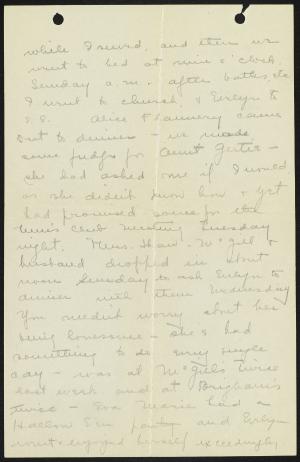 while I sewed, and then we
went to bed at nine o'clock.
Sunday a.m. after baths, etc
I went to church & Evelyn to
S.S. Alice & Flannery came
out to dinner – we made
some fudge for Aunt Gertie –
she had asked me if I would
as she didn't know how & yet
had promised some for the
Men's Club meeting Tuesday
night. Mrs. Shaw – McGill &
husband dropped in about
noon Sunday to ask Evelyn to
dinner with them Wednesday
You needn't worry about her
being lonesome – she's had
something to do every single
day – was at McGills twice
last week and at Brigham's
twice – Eva Marie had a
Hallow E'en party and Evelyn
went & enjoyed herself exceedingly,